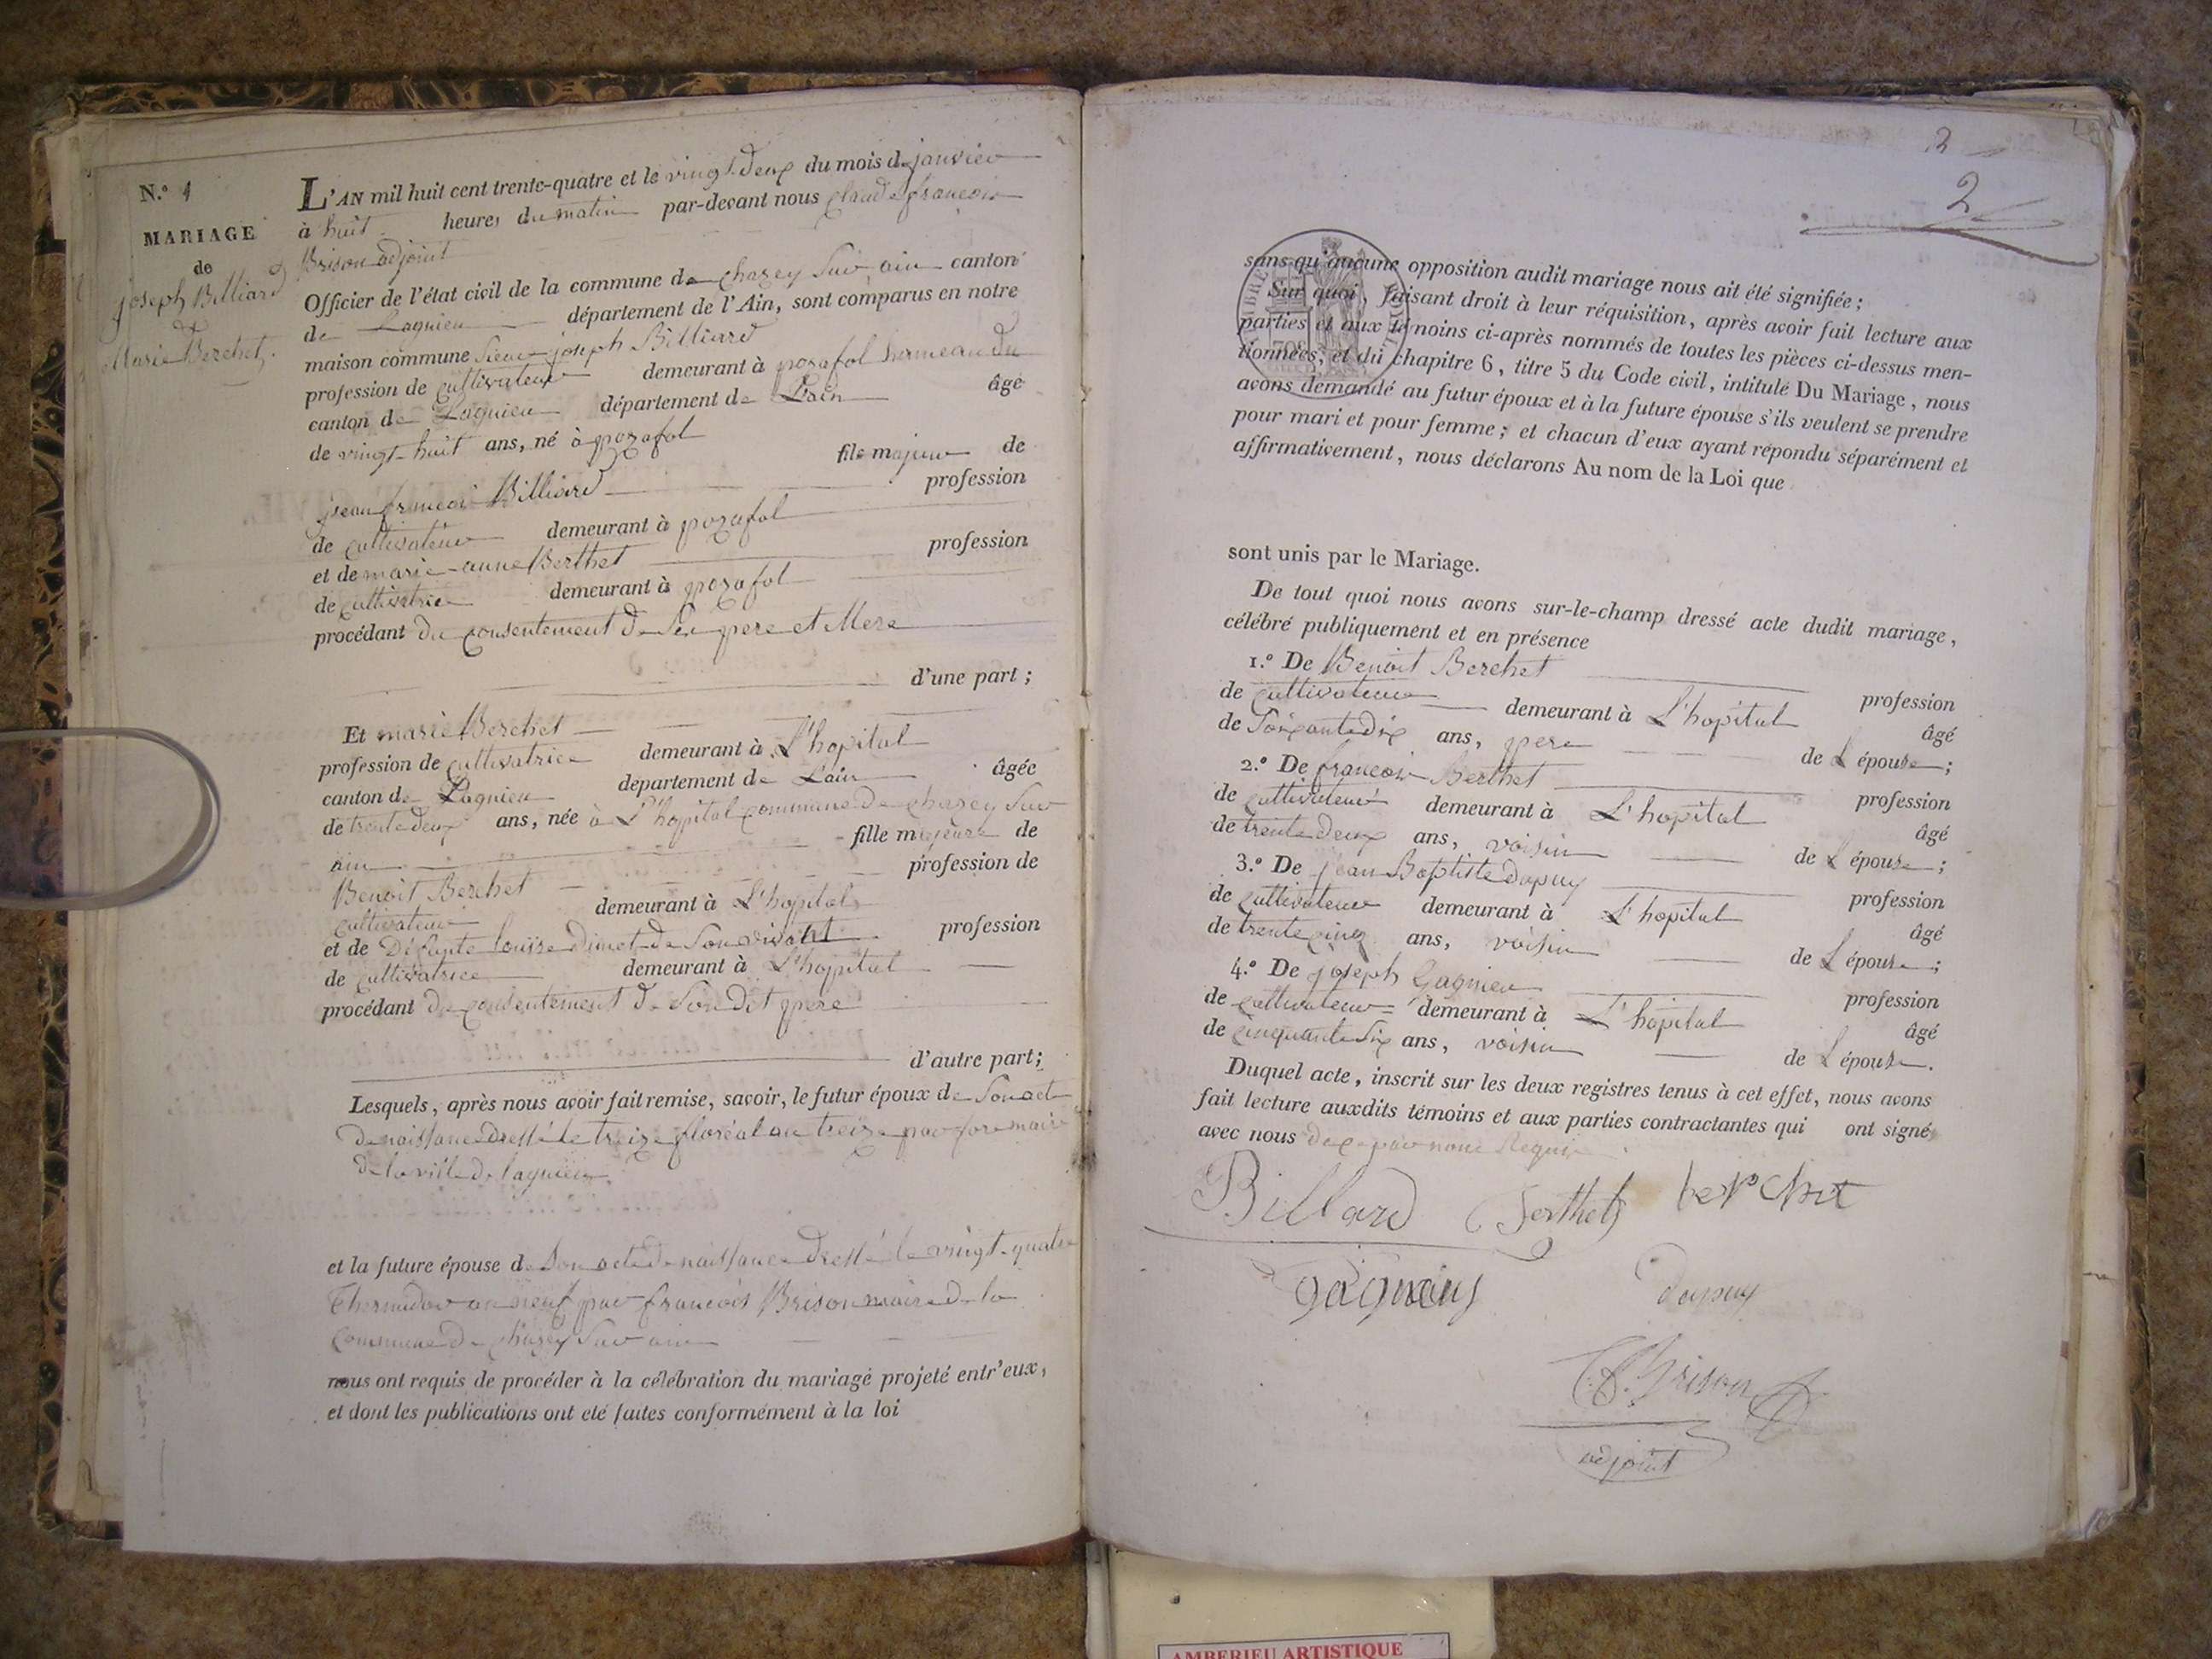 N.o 1
MARIAGE
de
joseph Billiard et
Marie Berchet.
L'AN mil huit cent trente-quatre et le vingt-deux du mois de janvier
à huit heures du matin par-devant nous claude françois
Brison adjoint
Officier de l'état civil de la commune de chazey sur ain canton
de Lagnieu département de l'Ain, sont comparus en notre
maison commune Sieur joseph Billiard
profession de cultivateur demeurant à posafol hameau du
canton de Lagnieu département de L'ain âgé
de vingt-huit ans, né à posafol
fils majeur de
jean françois Billiard profession
de cultivateur demeurant à posafol
et de marie-anne Berthet profession
de cultivatrice demeurant à posafol
procédant du consentement de Ses pere et Mere
d'une part ;
Et marie Berchet
profession de cultivatrice demeurant à L'hopital
canton de Lagnieu département de L'ain âgée
de trente deux ans, née à L'hopital commune de chazey Sur
ain fille majeure de
Benoit Berchet profession de
cultivateur demeurant à L'hopital
et de Défunte louise dimet de Son vivant profession
de cultivatrice demeurant à L'hopital
procédant du consentement de Son Dit pere
d'autre part ;
Lesquels, après nous avoir fait remise, savoir, le futur époux de Son acte
de naissance dressé le treize floréal an treize par maire
de la ville de lagnieu.
et la future épouse de Son acte de naissance dressé le vingt-quatre
Thermidor an neuf par françois Brison maire de la
commune de chazey Sur ain
nous ont requis de procéder à la célébration du mariage projeté entr'eux,
et dont les publications ont été faites conformément à la loi
2
2
sans qu'aucune opposition audit mariage nous ait été signifiée ;
Sur quoi, faisant droit à leur réquisition, après avoir fait lecture aux
parties et aux témoins ci-après nommés de toutes les pièces ci-dessus men-
tionnées, et du chapitre 6, titre 5 du Code civil, intitulé Du Mariage, nous
avons demandé au futur époux et à la future épouse s'ils veulent se prendre
pour mari et pour femme ; et chacun d'eux ayant répondu séparément et
affirmativement, nous déclarons Au nom de la Loi que
sont unis par le Mariage.
De tout quoi nous avons sur-le-champ dressé acte dudit mariage,
célébré publiquement et en présence
1.o De Benoit Berchet profession
de cultivateur demeurant à L'hopital âgé
de Soixante dix ans, pere de L'épouse ;
2.o De françois Berthet profession
de cultivateur demeurant à L'hopital âgé
de trente deux ans, voisin de L'épouse ;
3.o De jean Baptiste dapuy profession
de cultivateur demeurant à L'hopital âgé
de trente cinq ans, voisin de L'épouse ;
4.o De joseph Gagnieu profession
de cultivateur demeurant à L'hopital âgé
de cinquante Six ans, voisin de L'épouse.
Duquel acte, inscrit sur les deux registres tenus à cet effet, nous avons
fait lecture auxdits témoins et aux parties contractantes qui ont signé
avec nous de ce par nous Requis.
Billard Berthet berchet
dapuy
C. f. Brison
adjoint
AMBERIEU ARTISTIQUE